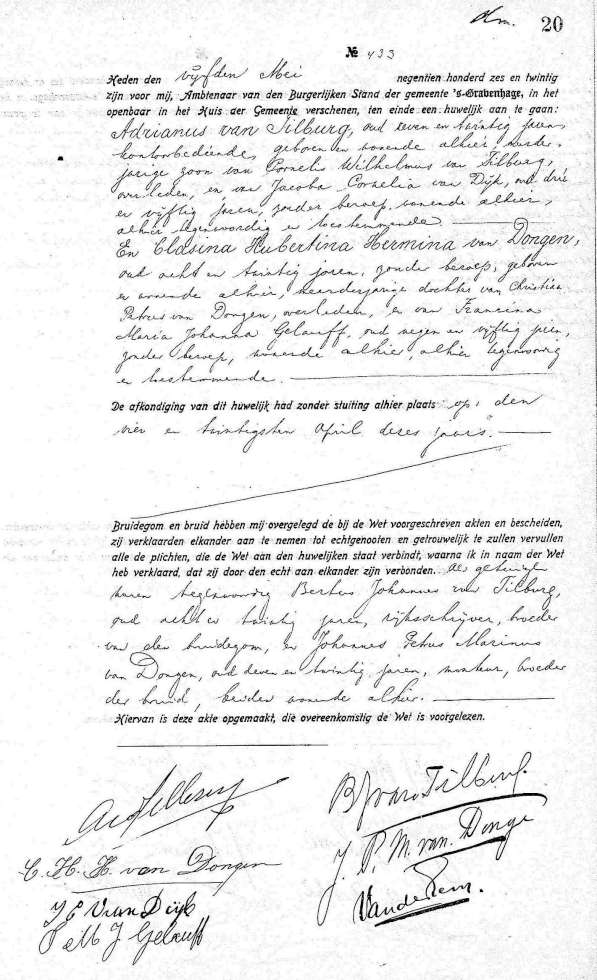 dm. 20
№ 433
Heden den vijfden Mei negentien honderd zes en twintig
zijn voor mij, Ambtenaar van den Burgerlijken Stand der gemeente 's-Gravenhage, in het
openbaar in het Huis der Gemeente verschenen, ten einde een huwelijk aan te gaan:
Adrianus van Tilburg, oud zeven en twintig jaren,
kantoorbediende, geboren en wonende alhier, meerder-
jarige zoon van Cornelis Wilhelmus van Tilburg,
overleden, en van Jacoba Cornelia van Dijk, oud drie
en vijftig jaren, zonder beroep, wonende alhier,
alhier tegenwoordig en toestemmende.
En Clasina Hubertina Hermina van Dongen,
oud acht en twintig jaren, zonder beroep, geboren
en wonende alhier, meerderjarige dochter van Christiaan
Petrus van Dongen, overleden, en van Francina
Maria Johanna Gelauff, oud negen en vijftig jaren,
zonder beroep, wonende alhier, alhier tegenwoordig
en toestemmende.
De afkondiging van dit huwelijk had zonder stuiting alhier plaats op den
vier en twintigsten April dezes jaars.
Bruidegom en bruid hebben mij overgelegd de bij de Wet voorgeschreven akten en bescheiden,
zij verklaarden elkander aan te nemen tot echtgenooten en getrouwelijk te zullen vervullen
alle de plichten, die de Wet aan den huwelijken staat verbindt, waarna ik in naam der Wet
heb verklaard, dat zij door den echt aan elkander zijn verbonden. Als getuigen
waren tegenwoordig Bertus Johannes van Tilburg,
oud acht en twintig jaren, rijksschrijver, broeder
van den bruidegom, en Johannes Petrus Marinus
van Dongen, oud zeven en twintig jaren, monteur, broeder
der bruid, beiden wonende alhier.
Hiervan is deze akte opgemaakt, die overeenkomstig de Wet is voorgelezen.
BJ van Tilburg.
C. H. H. van Dongen
J. P. M. van Donge
JC van Dijk
F M J Gelauff